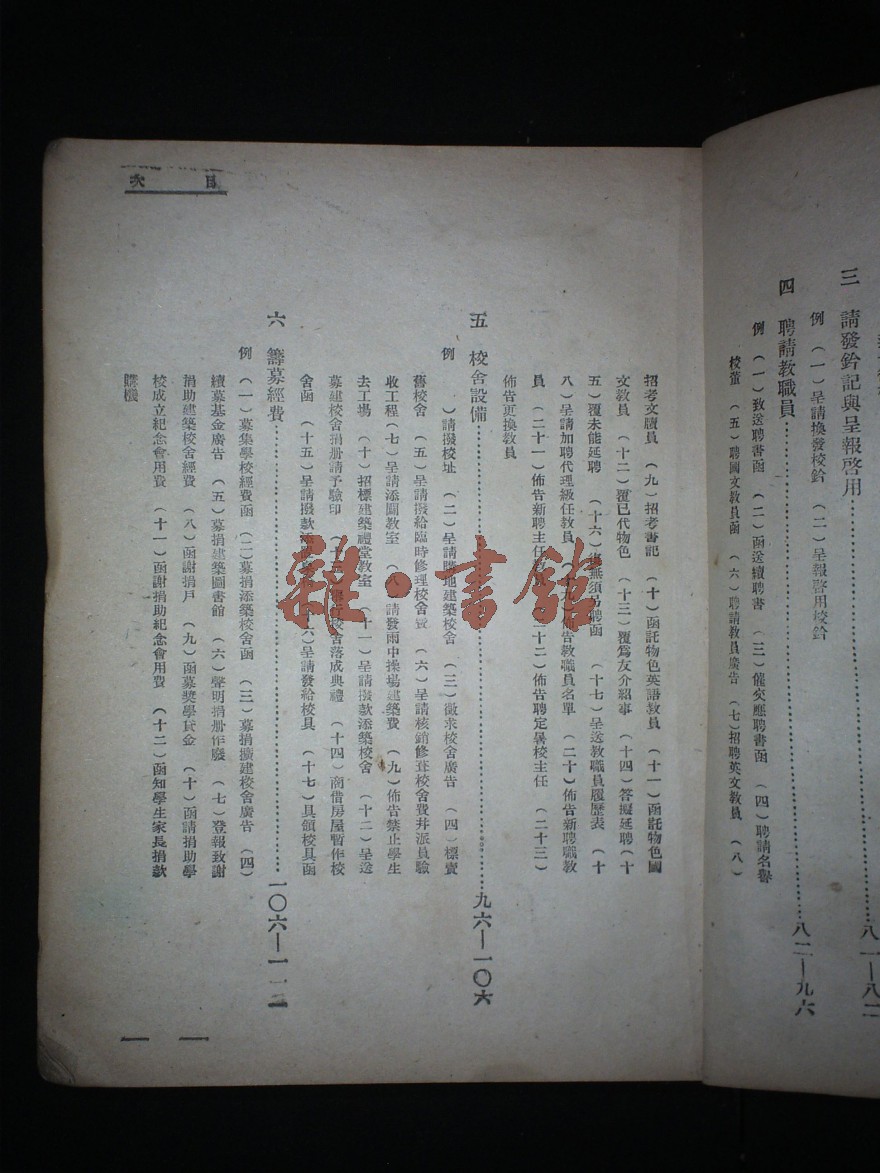 三 請發鈐記與呈報啓用……八一—八二
例 （一）呈請換發校鈐 （二）呈報啓用校鈐
四 聘請教職員……八二—九六
例 （一）致送聘書函 （二）函送續聘書 （三）催交應聘書函 （四）聘請名譽
校董 （五）聘國文教員函 （六）聘請教員廣告 （七）招聘英文教員 （八）
招考文牘員 （九）招考書記 （十）函託物色英語教員 （十一）函託物色國
文教員 （十二）覆已代物色 （十三）覆爲友介紹事 （十四）答擬延聘（十
五）覆未能延聘 （十六）無須另聘函 （十七）呈送教職員履歷表 （十
八）呈請加聘代理級任教員 （十九）佈告教職員名單 （二十）佈告新聘職教
員 （二十一）佈告新聘主任教員 （二十二）佈告聘定暑校主任 （二十三）
佈告更換教員
五 校舍設備……九六—一〇六
例 ）請撥校址 （二）呈請購地建築校舍 （三）徵求校舍廣告 （四）標賣
舊校舍 （五）呈請撥給臨時修理校舍費 （六）呈請核銷修葺校舍費幷派員驗
收工程（七）呈請添闢教室 （八）請發雨中操場建築費 （九）佈告禁止學生
去工場 （十）招標建築禮堂教室 （十一）呈請撥款添築校舍 （十二）呈送
募建校舍捐册請予驗印 （十三）行校舍落成典禮 （十四）商借房屋暫作校
舍函 （十五）呈請撥款添 （十六）呈請發給校具 （十七）具領校具函
六 籌募經費……一〇六—一一二
例 （一）募集學校經費函 （二）募捐添築校舍函 （三）募捐擴建校舍廣告 （四）
續募基金廣告 （五）募捐建築圖書館 （六）聲明捐册作廢 （七）登報致謝
捐助建築校舍經費 （八）函謝捐戶 （九）函募奬學貸金 （十）函請捐助學
校成立紀念會用費 （十一）函謝捐助紀念會用費 （十二）函知學生家長捐款
購機
目次
一一
雜·書館